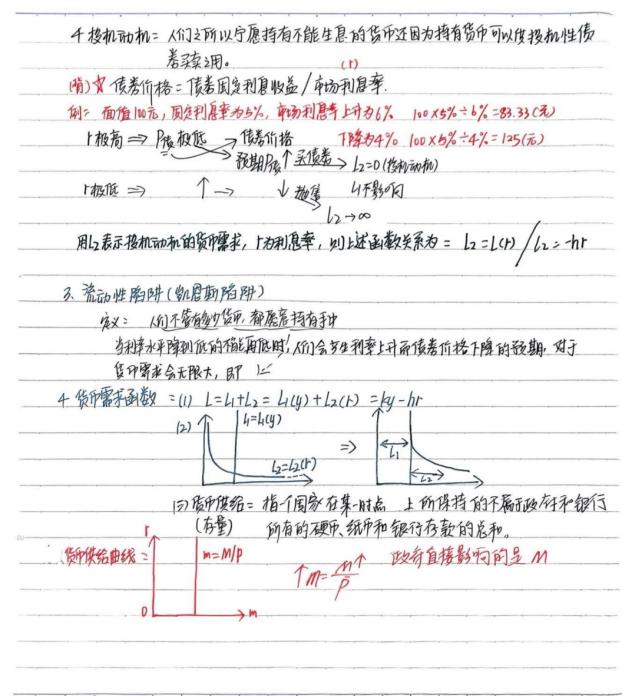 4 投机动机: 人们之所以宁愿持有不能生息的货币还因为持有货币可以供投机性债
券买卖之用。
(r)
债券价格 = 债券固定利息收益 / 市场利息率.
例: 面值100元, 固定利息率为5%, 市场利息率上升为6% 100×5%÷6%=83.33(元)
r极高 ⇒ P债极低 → 债券价格 下降为4% 100×5%÷4%=125(元)
预期P债↑ 买债券 → L2=0 (投机动机)
r极低 ⇒ ↑ → ↓ 抛售 L1不影响
L2→∞
用L2表示投机动机的货币需求, r为利息率, 则上述函数关系为: L2=L(r) / L2=-hr
3. 流动性陷阱(凯恩斯陷阱)
定义: 人们不管有多少货币, 都愿意持有手中
当利率水平降到低的不能再低时, 人们会产生利率上升而债券价格下降的预期, 对于
货币需求会无限大, 即
4 货币需求函数: (1) L=L1+L2=L1(y)+L2(r)=ky-hr
(2) L1=L1(y)
⇒ L1
L2=L2(r) L2
(3) 货币供给: 指一个国家在某一时点 上所保持的不属于政府和银行
(存量) 所有的硬币、纸币和银行存款的总和。
货币供给曲线: r m=M/P ↑m=M↑/P 政府直接影响的是 M
0 m